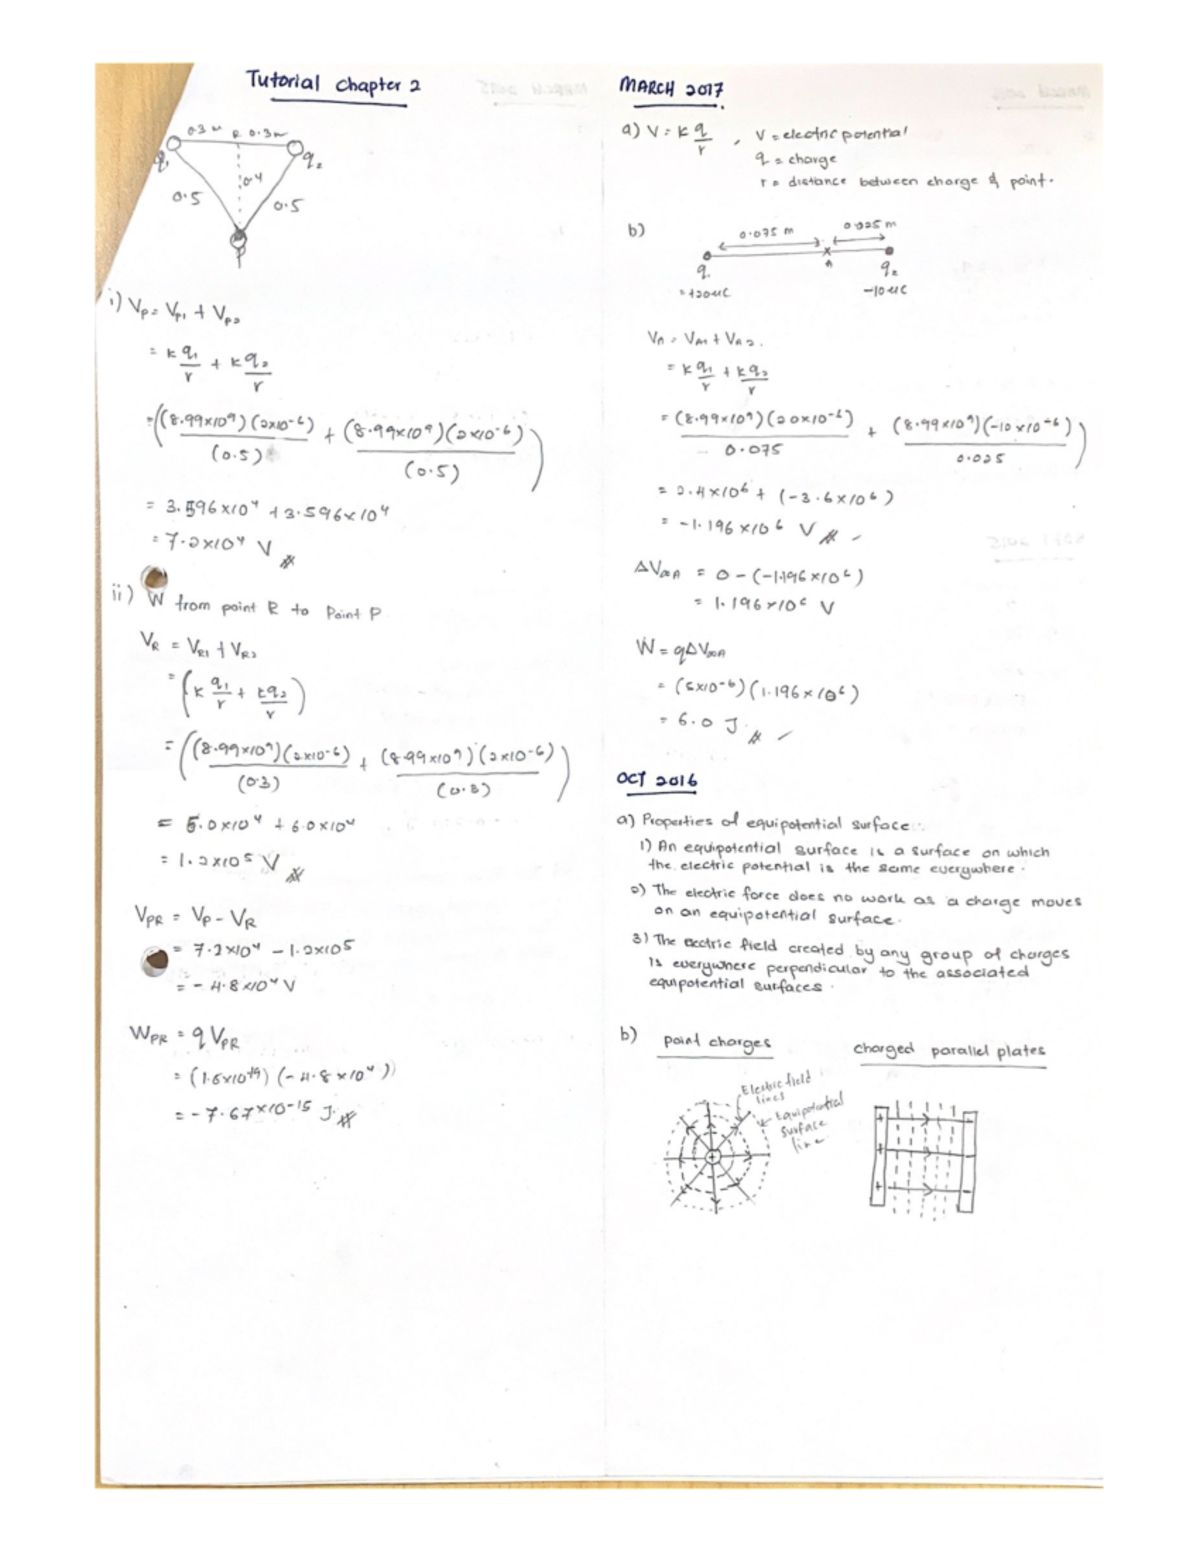 Tutorial chapter 2
0.3 m R 0.3m
q₁ q₂
0.4
0.5 0.5
P
i) Vp = Vp₁ + Vp₂
= k q₁/r + k q₂/r
= ((8.99x10⁹)(2x10⁻⁶)/(0.5) + (8.99x10⁹)(2x10⁻⁶)/(0.5))
= 3.596x10⁴ + 3.596x10⁴
= 7.2x10⁴ V
ii) W from point R to Point P
VR = VR1 + VR2
= (k q₁/r + kq₂/r)
= ((8.99x10⁹)(2x10⁻⁶)/(0.3) + (8.99x10⁹)(2x10⁻⁶)/(0.3))
= 6.0x10⁴ + 6.0x10⁴
= 1.2x10⁵ V
VPR = VP - VR
= 7.2x10⁴ - 1.2x10⁵
= - 4.8x10⁴ V
WPR = q VPR
= (1.6x10⁻¹⁹) (-4.8x10⁴)
= - 7.67x10⁻¹⁵ J
MARCH 2017
a) V = k q/r , V = electric potential
q = charge
r = distance between charge & point.
b) 0.075 m 0.025 m
q₁ A q₂
= +20uC -10uC
VA = VA1 + VA2.
= k q₁/r + kq₂/r
= (8.99x10⁹)(20x10⁻⁶)/0.075 + (8.99x10⁹)(-10x10⁻⁶)/0.025)
= 2.4x10⁶ + (-3.6x10⁶)
= -1.196x10⁶ V
ΔV∞A = 0 - (-1.196x10⁶)
= 1.196x10⁶ V
W = qΔV∞A
= (5x10⁻⁶)(1.196x10⁶)
= 6.0 J
OCT 2016
a) Properties of equipotential surface :
1) An equipotential surface is a surface on which
the electric potential is the same everywhere.
2) The electric force does no work as a charge moves
on an equipotential surface.
3) The electric field created by any group of charges
is everywhere perpendicular to the associated
equipotential surfaces.
b) point charges charged parallel plates
Electric field
lines
Equipotential
surface
line
+
+ -
+ -
+ -